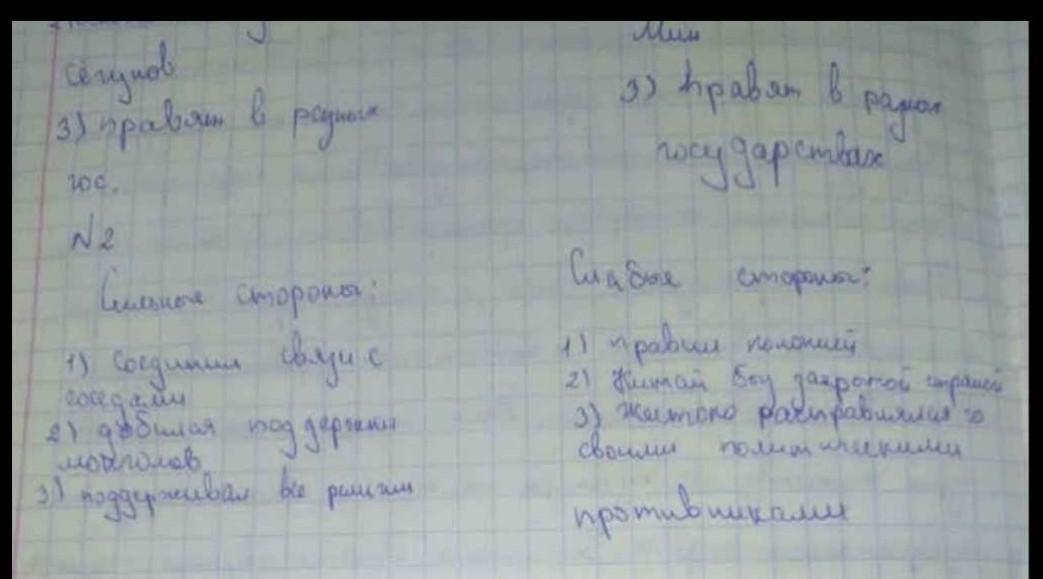 сёгунов
3) правят в разных
гос.
№2
Сильные стороны:
1) Соединил связи с
соседами
2) добился поддержки
монголов
3) поддерживал все религии
Мин
3) правят в разных
государствах
Слабые стороны:
1) правил
2) Китай был закротой страной
3) Жестоко расправлялся со
своими политическими
противниками